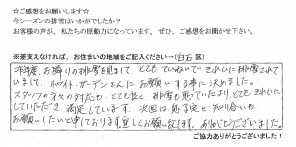 ☆ご感想をお願いします☆
今シーズンの排雪はいかがでしたか？
お客様の声が、私たちの原動力になっています。ぜひ、ご感想をお聞かせ下さい。
※差支えなければ、お住まいの地域をご記入ください→（白石区）
昨年、お隣りの排雪を見まして、とてもていねいできれいに排雪されて
いまして、ホワイトガーデンさんにお願いする事に決めました。
スタッフの方々の対応も、とても良く、排雪も思っていたより、とてもきれいに
していただき、満足しています。次回は、知り合いも
お願いしたいと申しております。宜しくお願い致します。ありがとうございました。
ご協力ありがとうございました！